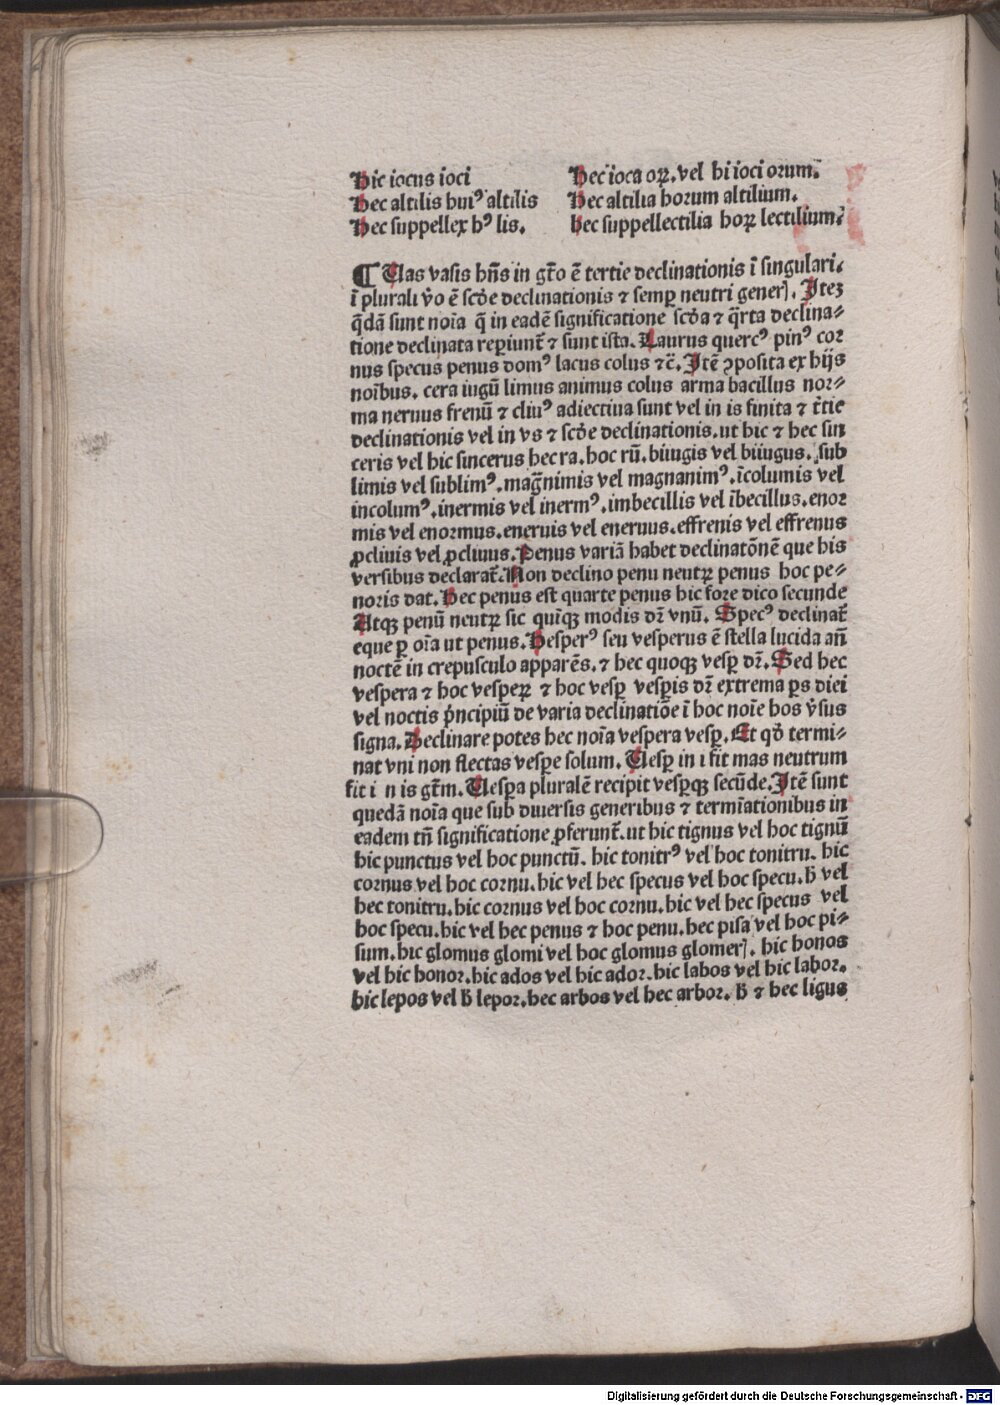 Hic iocus ioci Hec ioca oꝝ. vel hi ioci orum.
Hec altilis huiꝰ altilis Hec altilia horum altilium.
Hec suppellex hꝰ lis. hec suppellectilia hoꝝ lectilium.
¶ Uas vasis hn̄s in gr̄o ē tertie declinationis ī singulari.
ī plurali v̓o ē scd̓e declinationis ⁊ semꝑ neutri generꝭ. Iteꝫ
q̄dā sunt noīa q̄ in eadē significatione scd̓a ⁊ q̄rta declina⸗
tione declinata reꝑiunt̄ ⁊ sunt ista. Laurus quercꝰ pinꝰ cor
nus specus penus domꝰ lacus colus ⁊c̄. Itē ꝯposita ex hijs
noībus. cera iugū limus animus colus arma bacillus nor⸗
ma neruus frenū ⁊ cliuꝰ adiectiua sunt vel in is finita ⁊ t̄tie
declinationis vel in vs ⁊ scd̓e declinationis. ut hic ⁊ hec sin
ceris vel hic sincerus hec ra. hoc rū. biiugis vel biiugus. sub
limis vel sublimꝰ. mag̅nimis vel magnanimꝰ. īcolumis vel
incolumꝰ. inermis vel inermꝰ. imbecillis vel ībecillus. enor
mis vel enormus. eneruis vel eneruus. effrenis vel effrenus
ꝓcliuis vel ꝓcliuus. Penus variā habet declinatōnē que his
versibus declarat̄. Non declino penu neutꝝ penus hoc pe⸗
noris dat. Hec penus est quarte penus hic fore dico secunde
Atqꝫ penū neutꝝ sic quīqꝫ modis dr̄ vnū. Specꝰ declinat̄
eque ꝑ oīa ut penus. Hesperꝰ seu vesperus ē stella lucida an̄
noctē in crepusculo apparēs. ⁊ hec quoqꝫ vesꝑ dr̄. Sed hec
vespera ⁊ hoc vespeꝝ ⁊ hoc vesꝑ vesꝑis dr̄ extrema ꝑs diei
vel noctis pn̓cipiū de varia declinatiōe ī hoc noīe hos v̓sus
signa. Declinare potes hec noīa vespera vesꝑ. Et qd̓ termi⸗
nat vni non flectas vesꝑe solum. Uesꝑ in i fit mas neutrum
fit i n is gt̄m. Uesꝑa pluralē recipit vesꝑqꝫ secūde. Itē sunt
quedā noīa que sub diuersis generibus ⁊ termīationibus in
eadem tn̄ significatione ꝓferunt̄. ut hic tignus vel hoc tignū
hic punctus vel hoc punctū. hic tonitrꝰ vel hoc tonitru. hic
cornus vel hoc cornu. hic vel hec specus vel hoc specu. h̄ vel
hec tonitru. hic cornus vel hoc cornu. hic vel hec specus vel
hoc specu. hic vel hec penus ⁊ hoc penu. hec pisa vel hoc pi⸗
sum. hic glomus glomi vel hoc glomus glomerꝭ. hic honos
vel hic honor. hic ados vel hic ador. hic labos vel hic labor.
hic lepos vel h̄ lepor. hec arbos vel hec arbor. h̄ ⁊ hec ligus
Digitalisierung gefördert durch die Deutsche Forschungsgemeinschaft - DFG